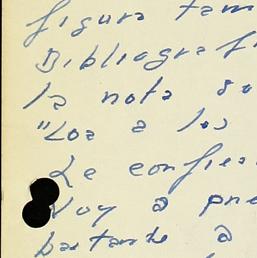 figura tam
Bibliografi
la nota so
"Loa a los
Le confies
Voy a pre
bastante a